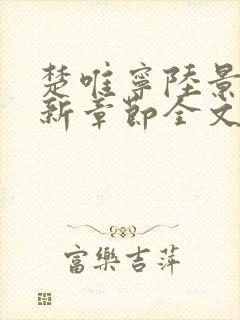 楚唯寧陸景
新章節全文
富樂吉萍